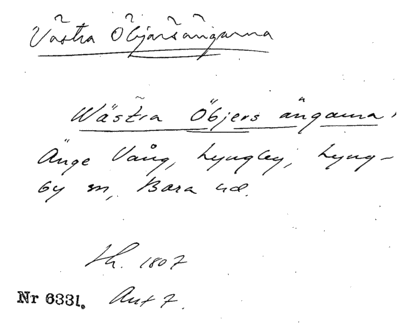 Västra Öbjersängarna
Wästra Öbjers ängarna,
Änge Vång, Lyngby, Lyng-
by sn, Bara hd.
Sk. 1807
Akt 7.
Nr 6331.